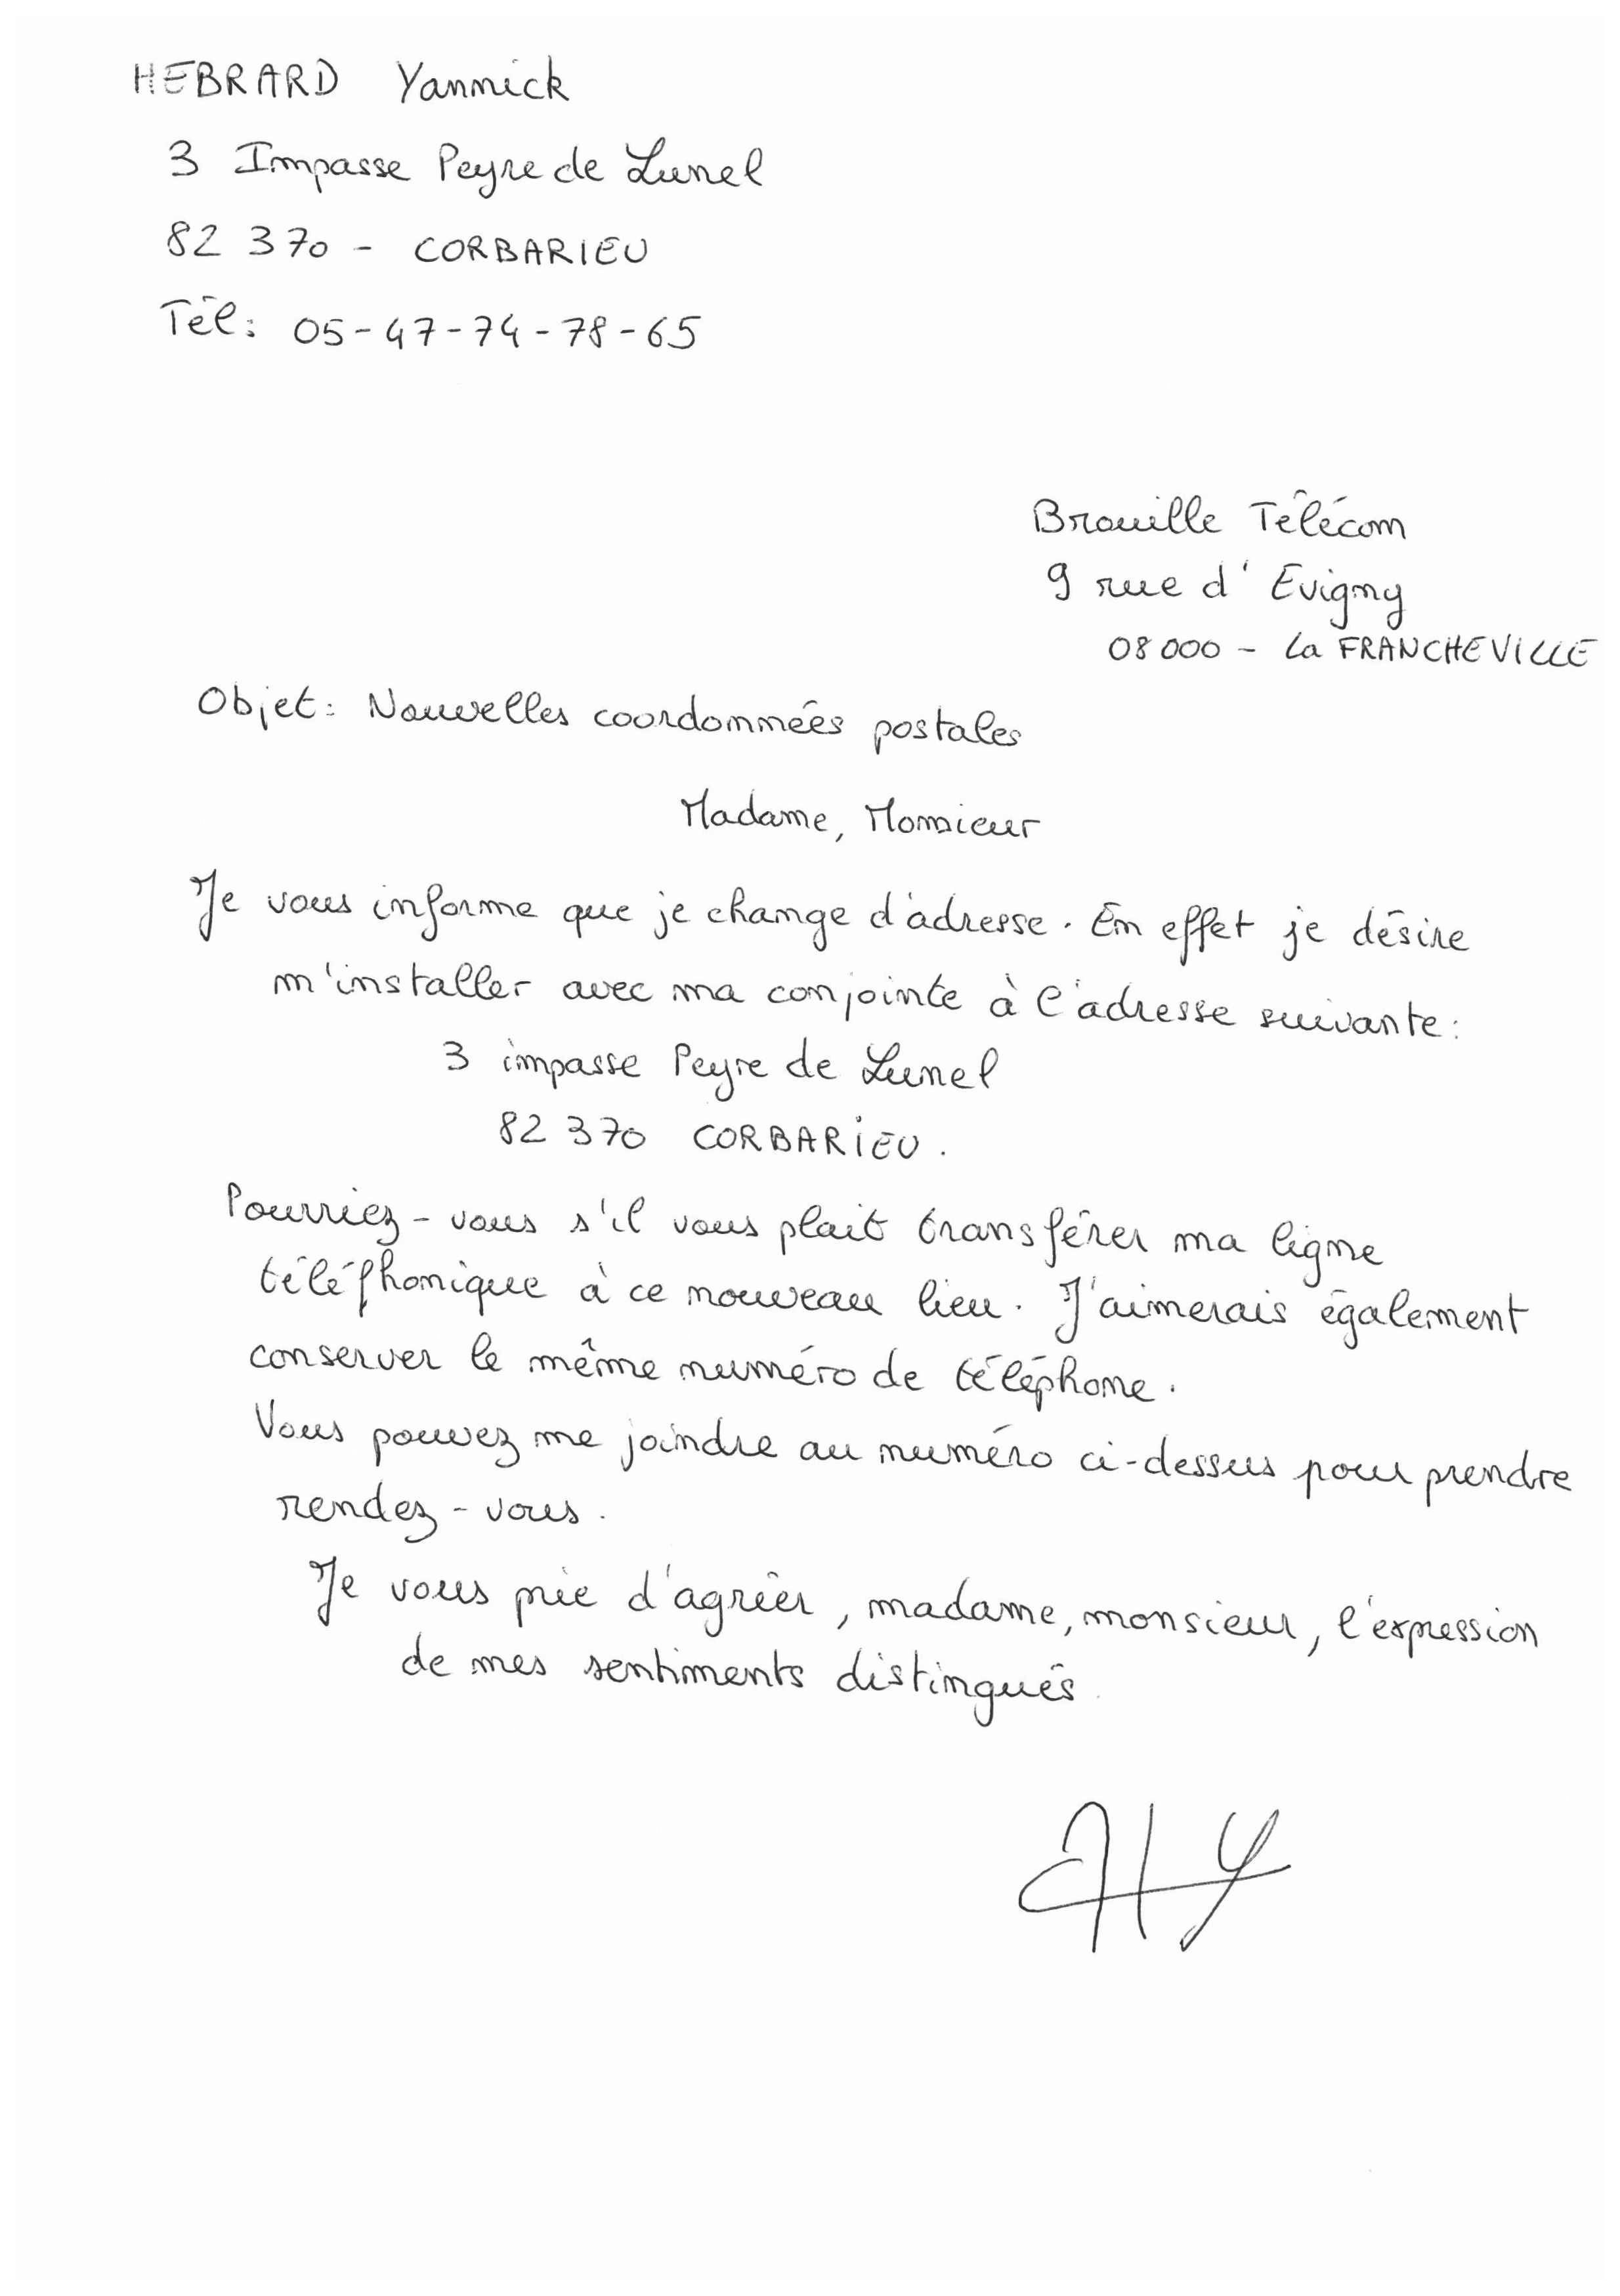 HEBRARD Yannick
3 Impasse Peyre de Lunel
82 370 - CORBARIEU
Tél: 05-47-74-78-65
Brouille Télécom
9 rue d'Evigny
08 000 - La FRANCHEVILLE
Objet: Nouvelles coordonnées postales
Madame, Monsieur
Je vous informe que je change d'adresse. En effet je désire
m'installer avec ma conjointe à l'adresse suivante:
3 impasse Peyre de Lunel
82 370 CORBARIEU.
Pourriez-vous s'il vous plait transférer ma ligne
téléphonique à ce nouveau lieu. J'aimerais également
conserver le même numéro de téléphone.
Vous pouvez me joindre au numéro ci-dessus pour prendre
rendez-vous.
Je vous prie d'agréer, madame, monsieur, l'expression
de mes sentiments distingués.
HY